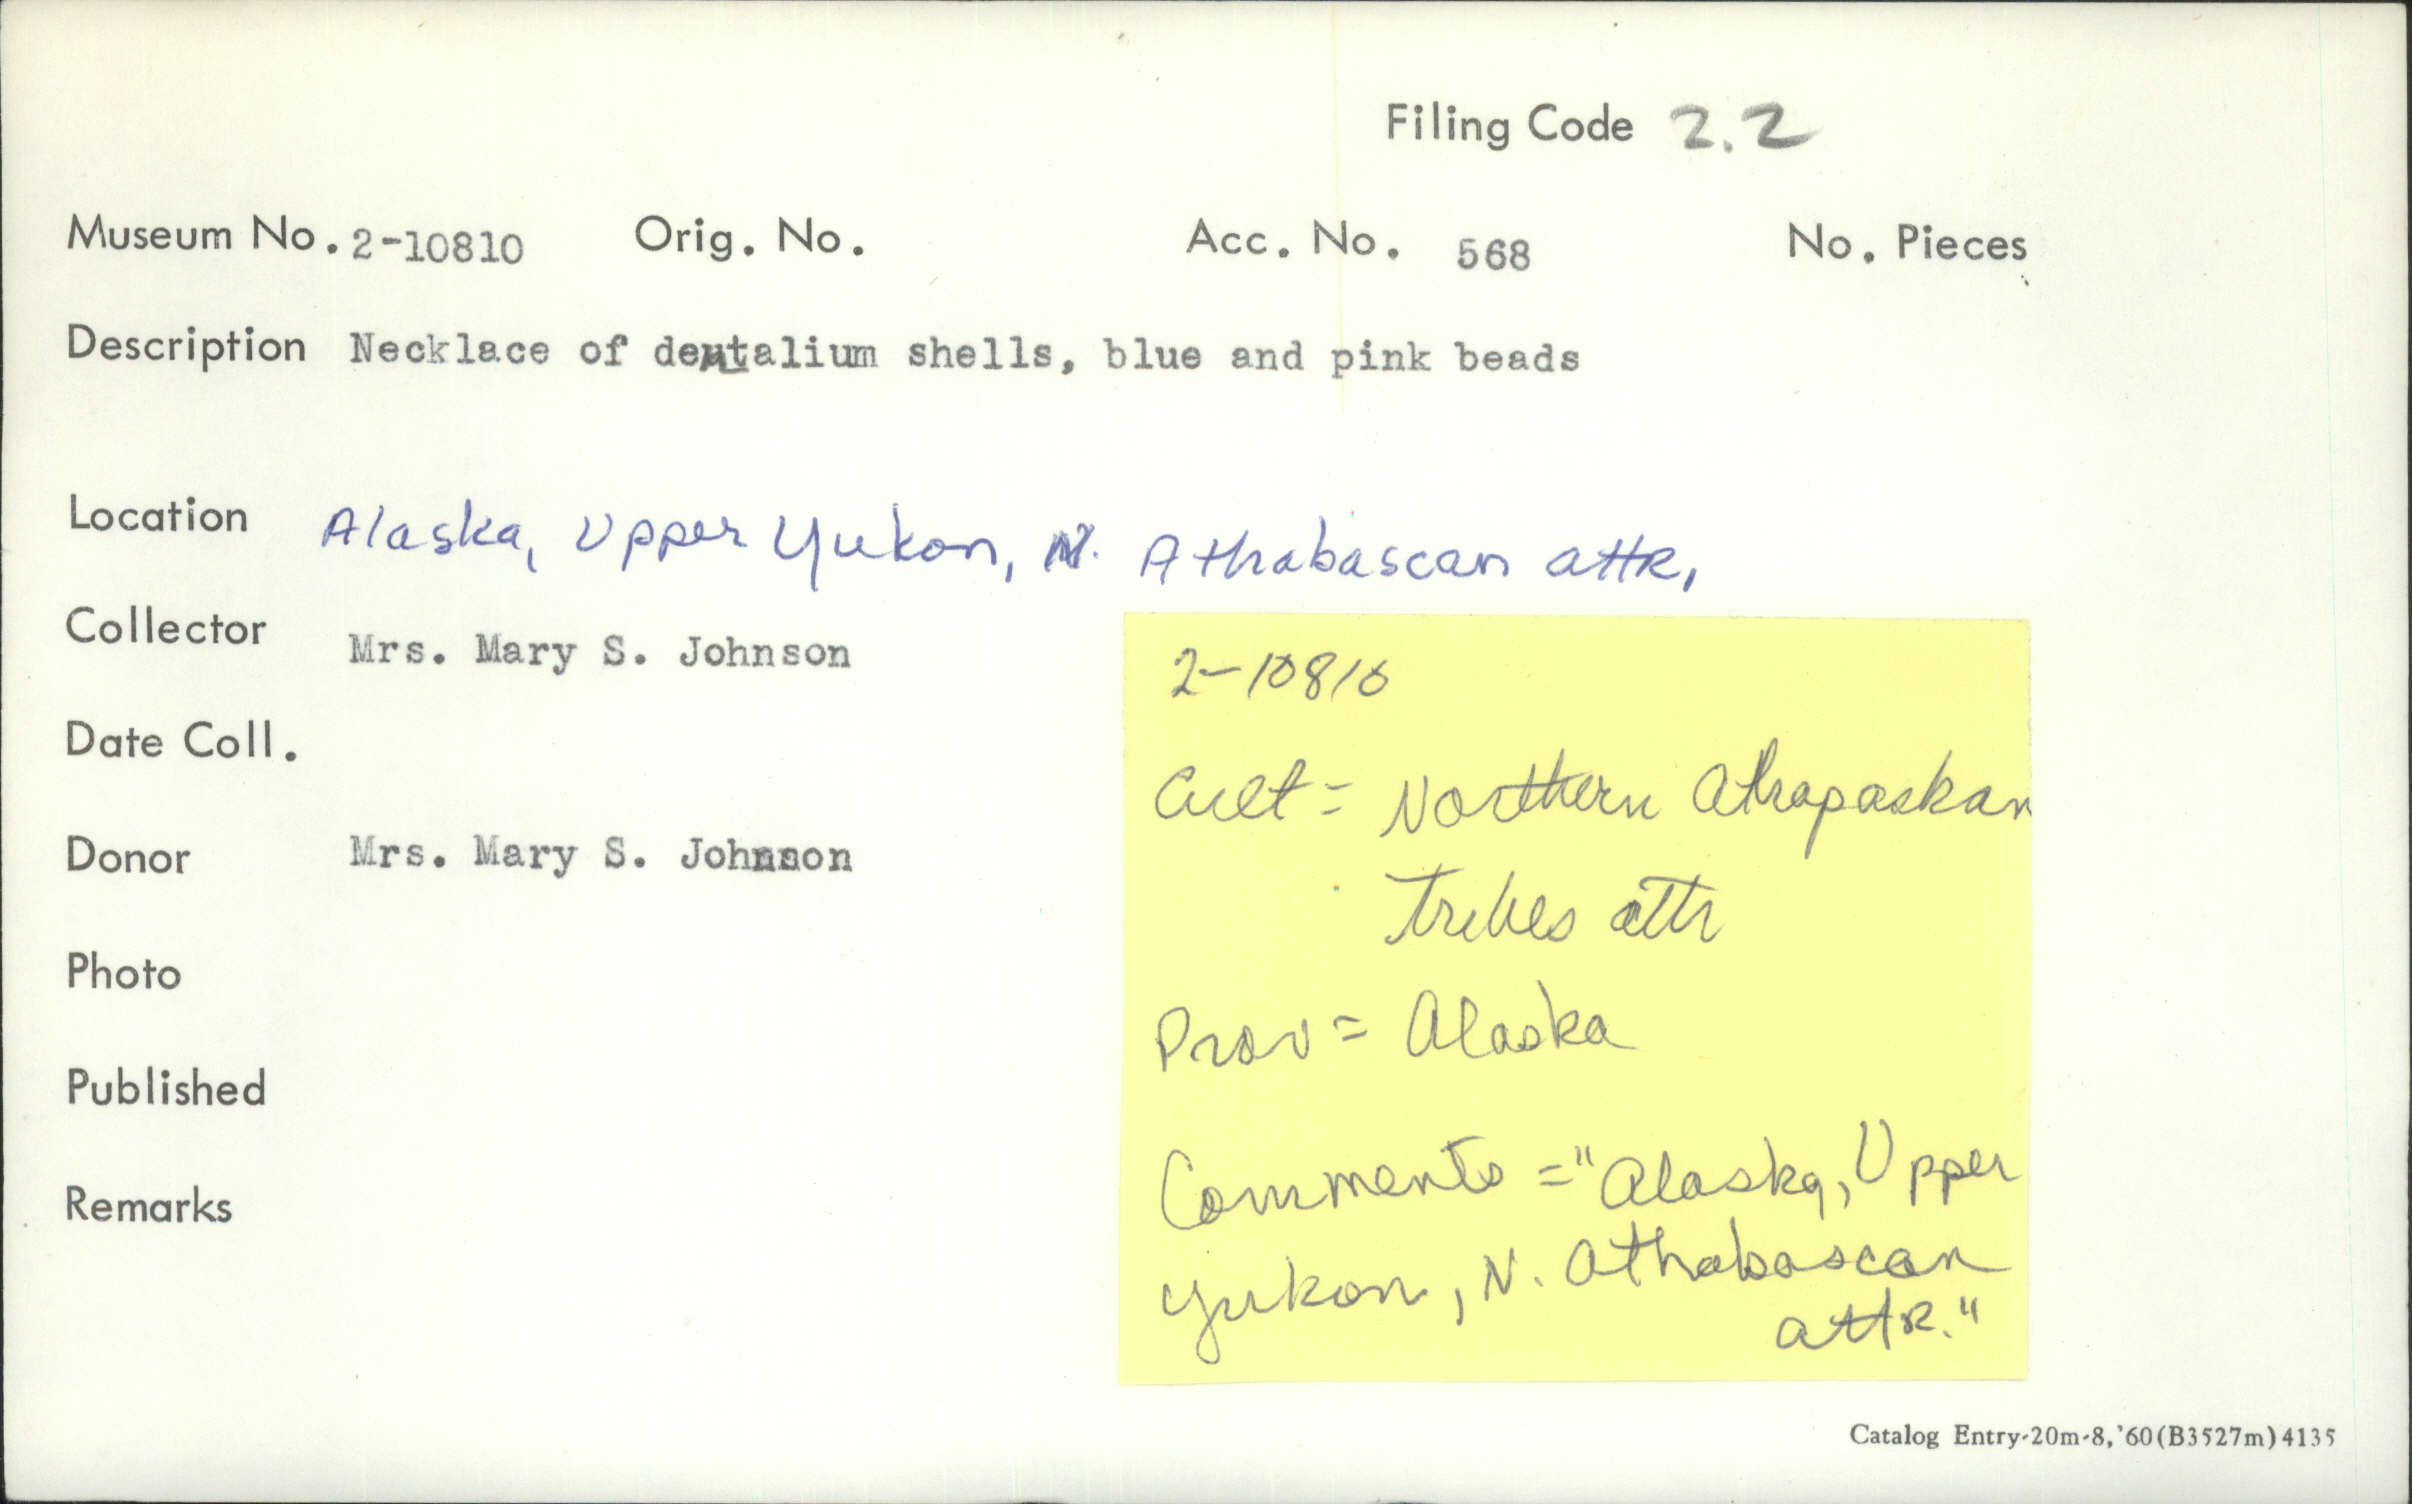 Filing Code 2.2
Museum No. 2-10810 Orig. No. Acc. No. 568 No. Pieces
Description Necklace of dentalium shells, blue and pink beads
Location Alaska, Upper Yukon, N. Athabascan attr.
Collector Mrs. Mary S. Johnson
Date Coll.
Donor Mrs. Mary S. Johnson
Photo
Published
Remarks
2-10810
Cult = Northern Athapaskan
Tribes attr
Prov = Alaska
Comments = "Alaska, Upper
Yukon, N. Athabascan
attr."
Catalog Entry-20m-8,'60(B3527m)4135